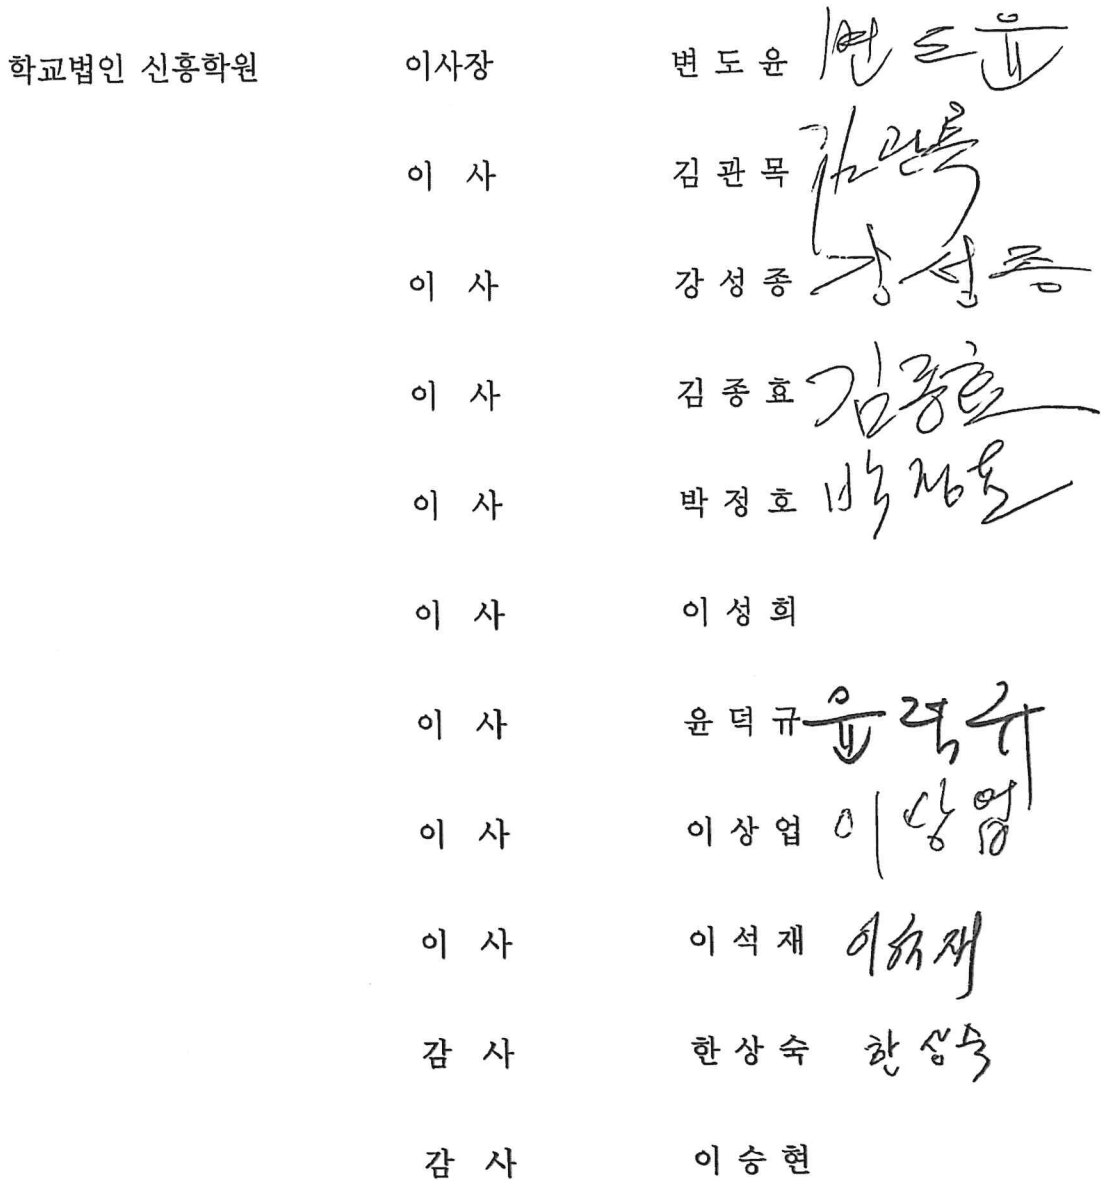 학교법인 신흥학원 이사장 변 도 윤 변도윤
이 사 김 관 목 김관목
이 사 강 성 종 강성종
이 사 김 종 효 김종효
이 사 박 정 호 박정호
이 사 이 성 희
이 사 윤 덕 규 윤덕규
이 사 이 상 업 이상업
이 사 이 석 재 이석재
감 사 한 상 숙 한상숙
감 사 이 승 현